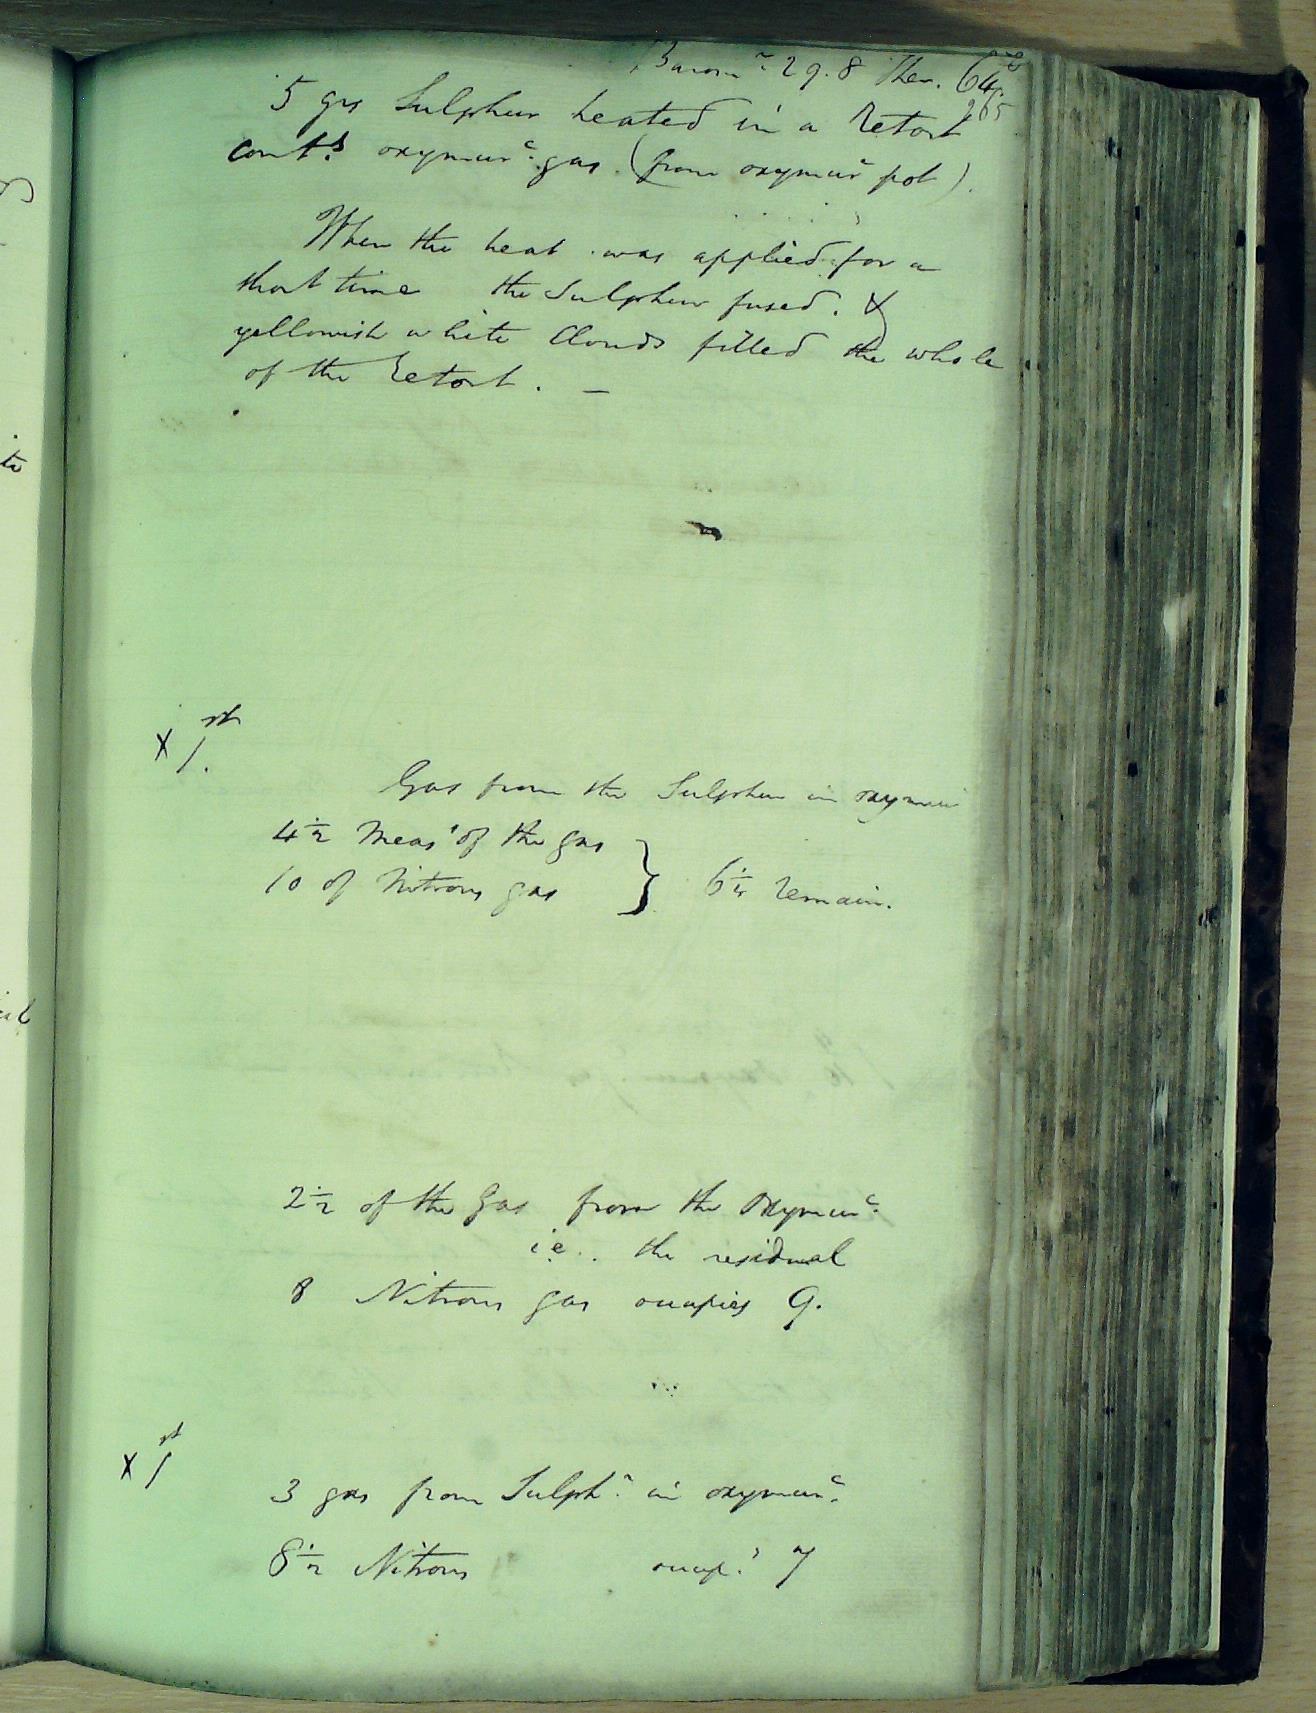 Barom.r 29.8 Ther. 64
265
5 grs Sulphur heated in a Retort
cont.g oxymur.c gas (from oxymur.c pot).
When the heat was applied for a
short time the Sulphur fused. &
yellowish white Clouds filled the whole
of the Retort. —
x 1.st
Gas from the Sulphur in oxymur
4½ Meas.s of the gas
10 of Nitrous gas } 6¼ remain.
2½ of the Gas from the Oxymur.c
i.e. the residual
8 Nitrous gas occupies 9.
x 1st
3 gas from Sulph.r in oxymur.c
8½ Nitrous occup.s 7